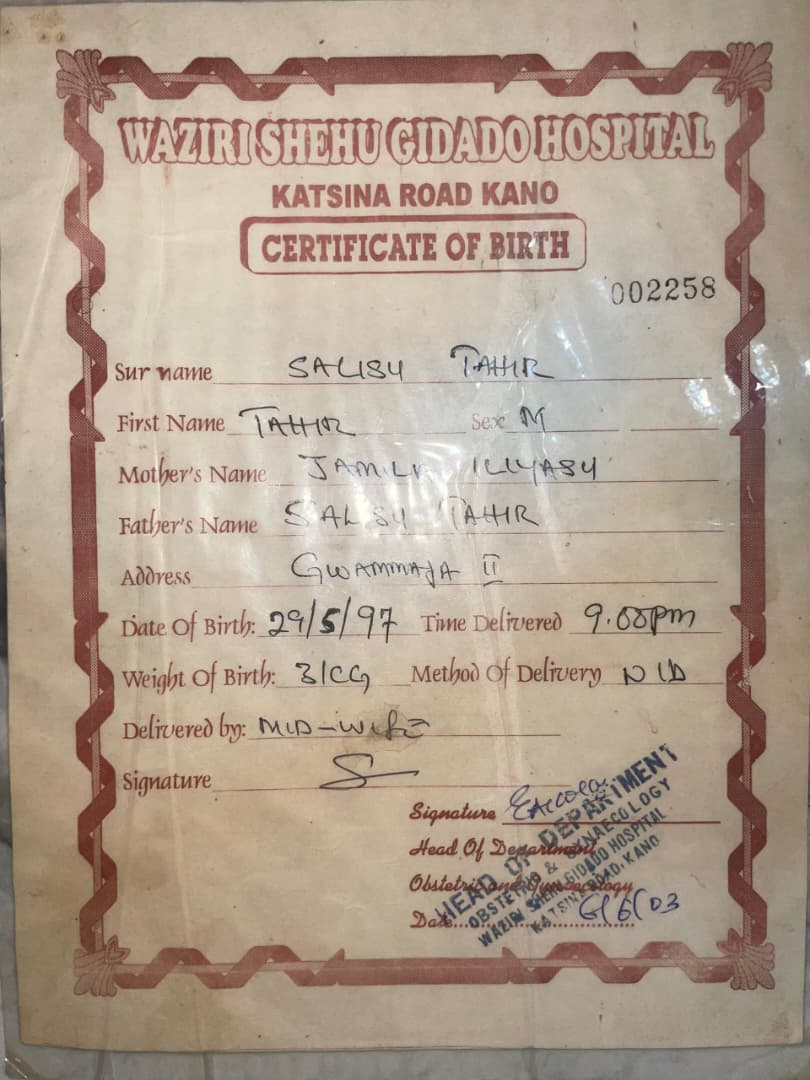 WAZIRI SHEHU GIDADO HOSPITAL
KATSINA ROAD KANO
CERTIFICATE OF BIRTH
002258
Sur name SALISU TAHIR
First Name TAHIR Sex M
Mother's Name JAMILA ILLYASU
Father's Name SALISU TAHIR
Address GWAMMAJA II
Date Of Birth: 29/5/97 Time Delivered 9.00pm
Weight Of Birth: Method Of Delivery
Delivered by: MID-wife
Signature
Signature
Head Of Department
Obstetric and Gynaecology
Date 6/6/03
HEAD OF DEPARTMENT
OBSTETRIC & GYNAECOLOGY
WAZIRI SHEHU GIDADO HOSPITAL
KATSINA ROAD, KANO